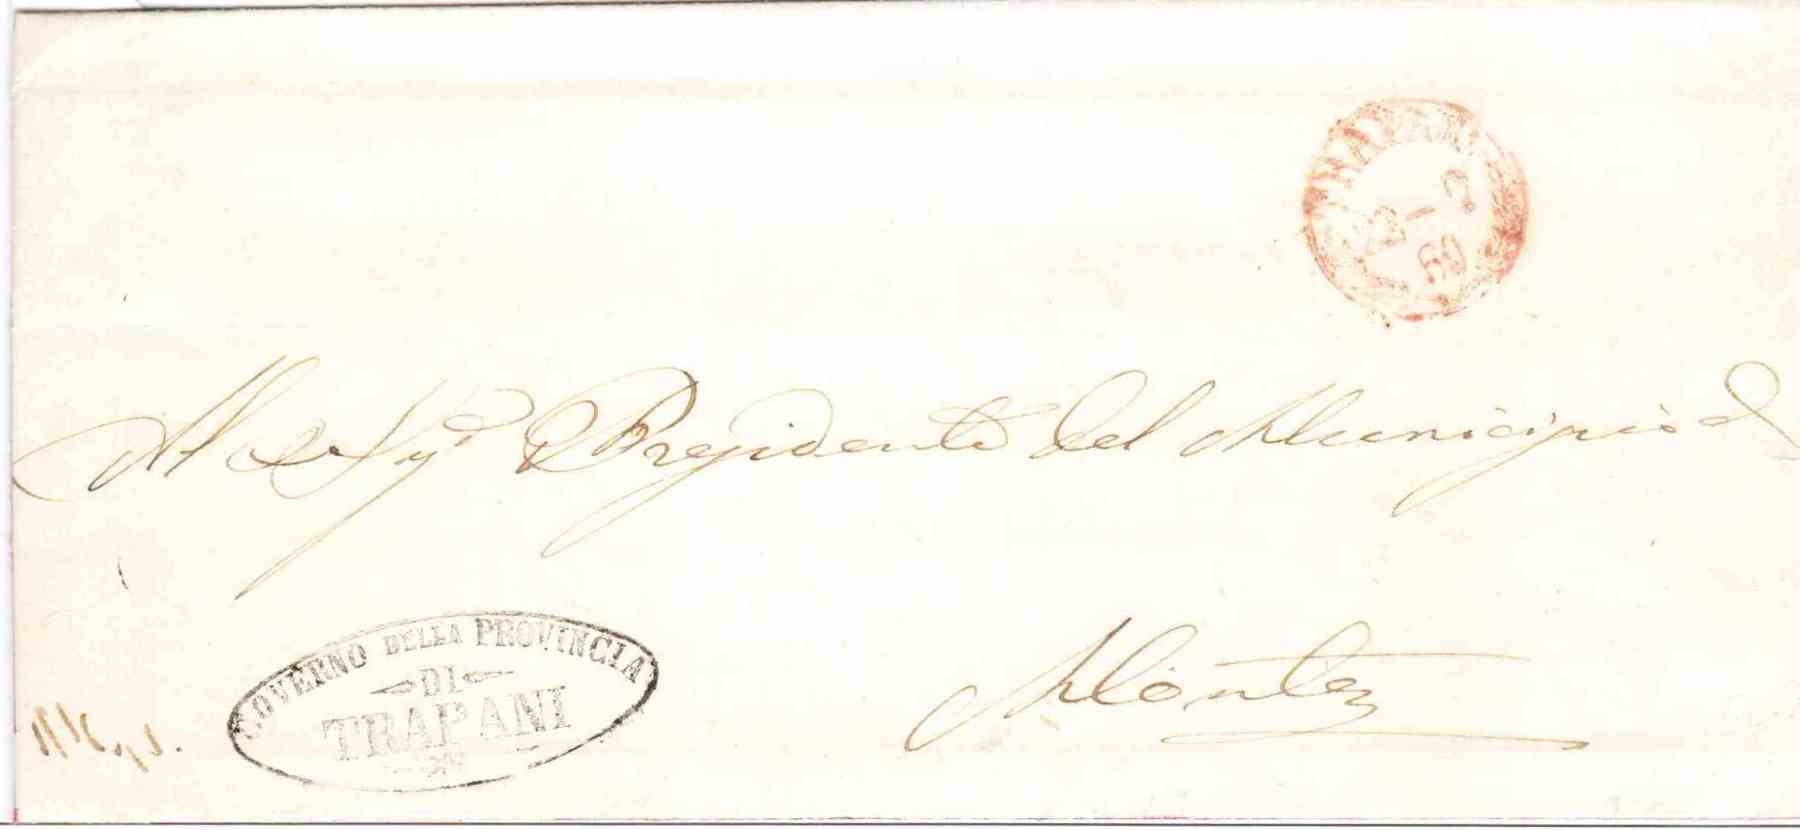 TRAPANI
60
Al Sigr Presidente del Municipio di
Monte
GOVERNO DELLA PROVINCIA
DI
TRAPANI